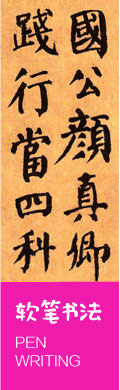 國公顔真卿
踐行當四科
软笔书法
PEN
WRITING